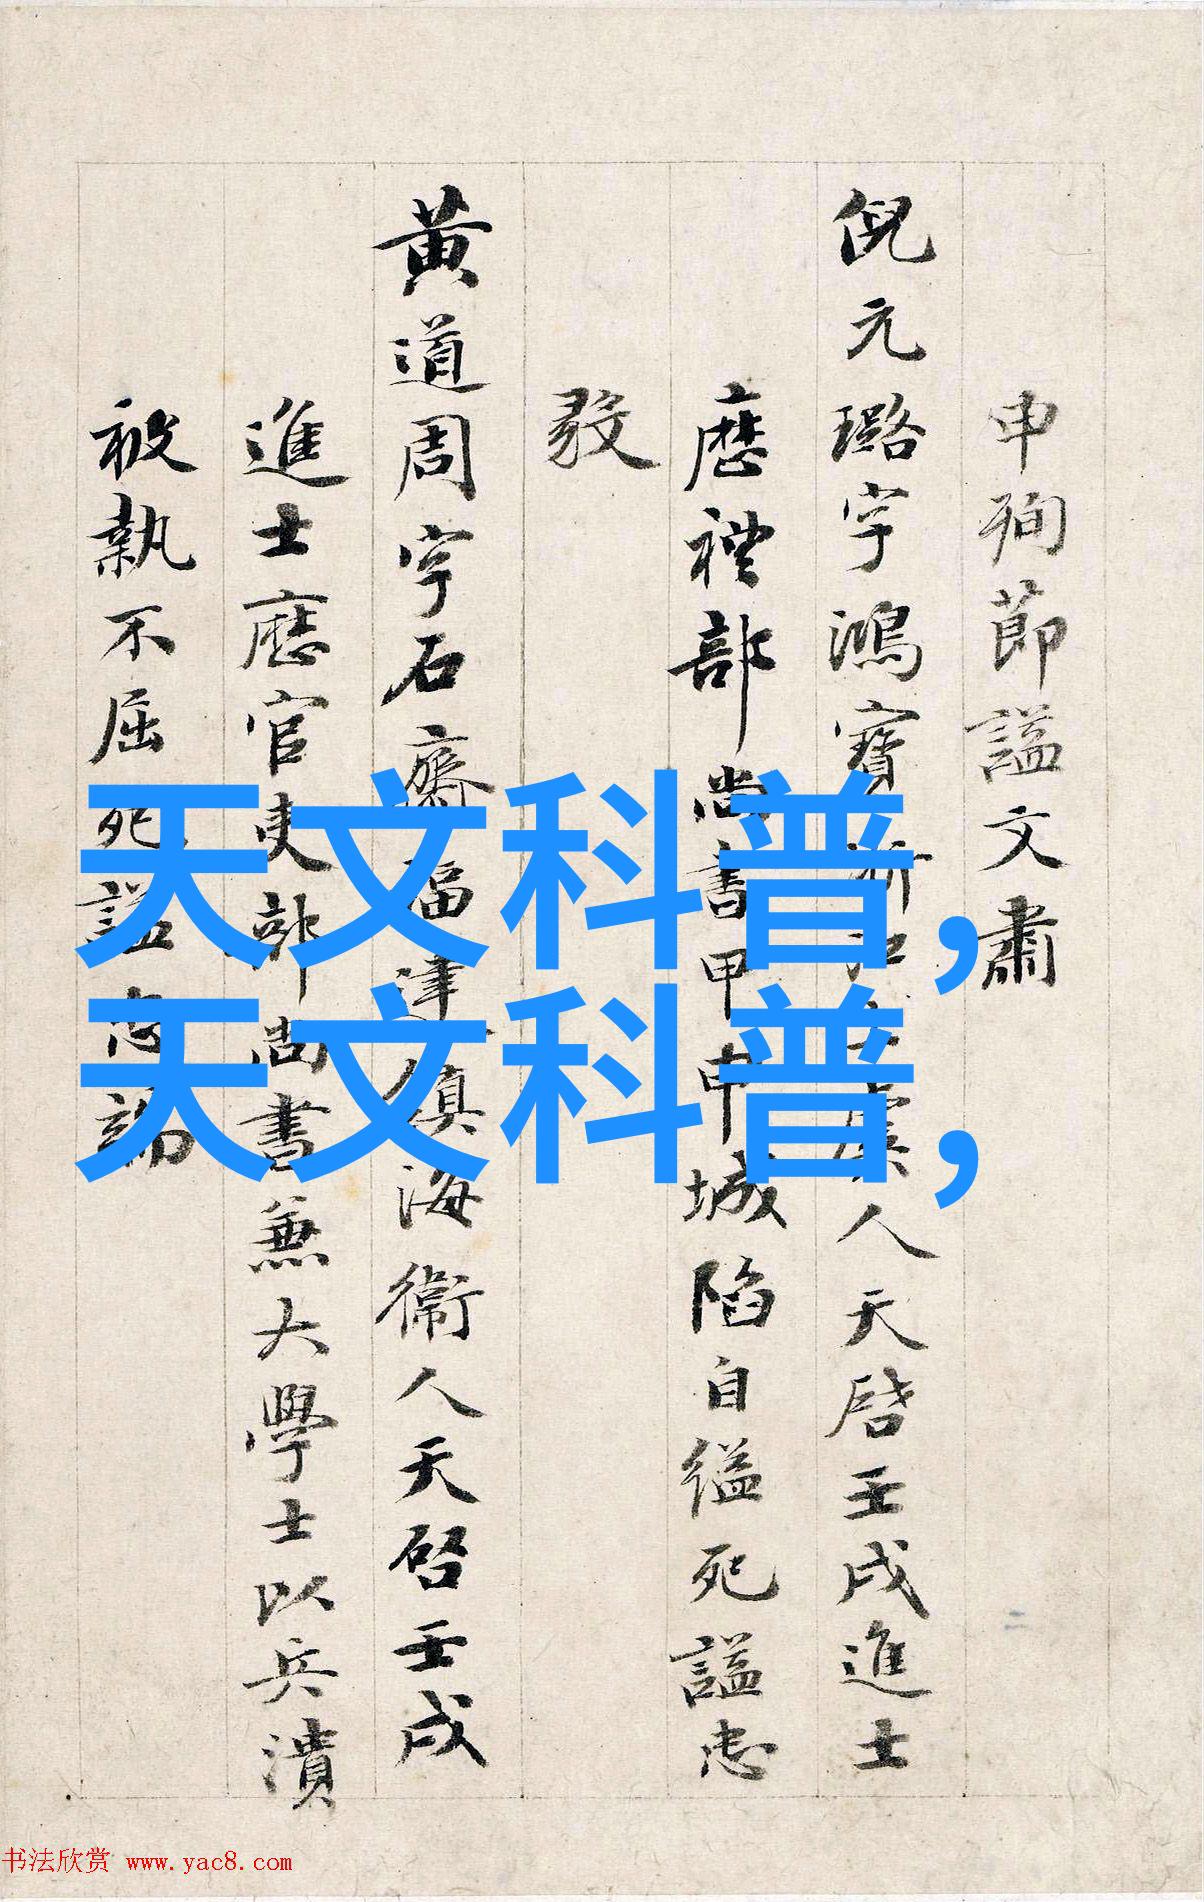 申殉節謚文肅
倪元璐字鴻寶浙江上虞人天啓壬戌進士
歷禮部尚書甲申城陷自縊死謚忠
毅
黃道周字石齋福建鎮海衛人天啓壬戌
進士歷官吏部尚書兼大學士以兵潰
被執不屈死謚忠端
天文科普,
天文科普,
书法欣赏 www.yac8.com